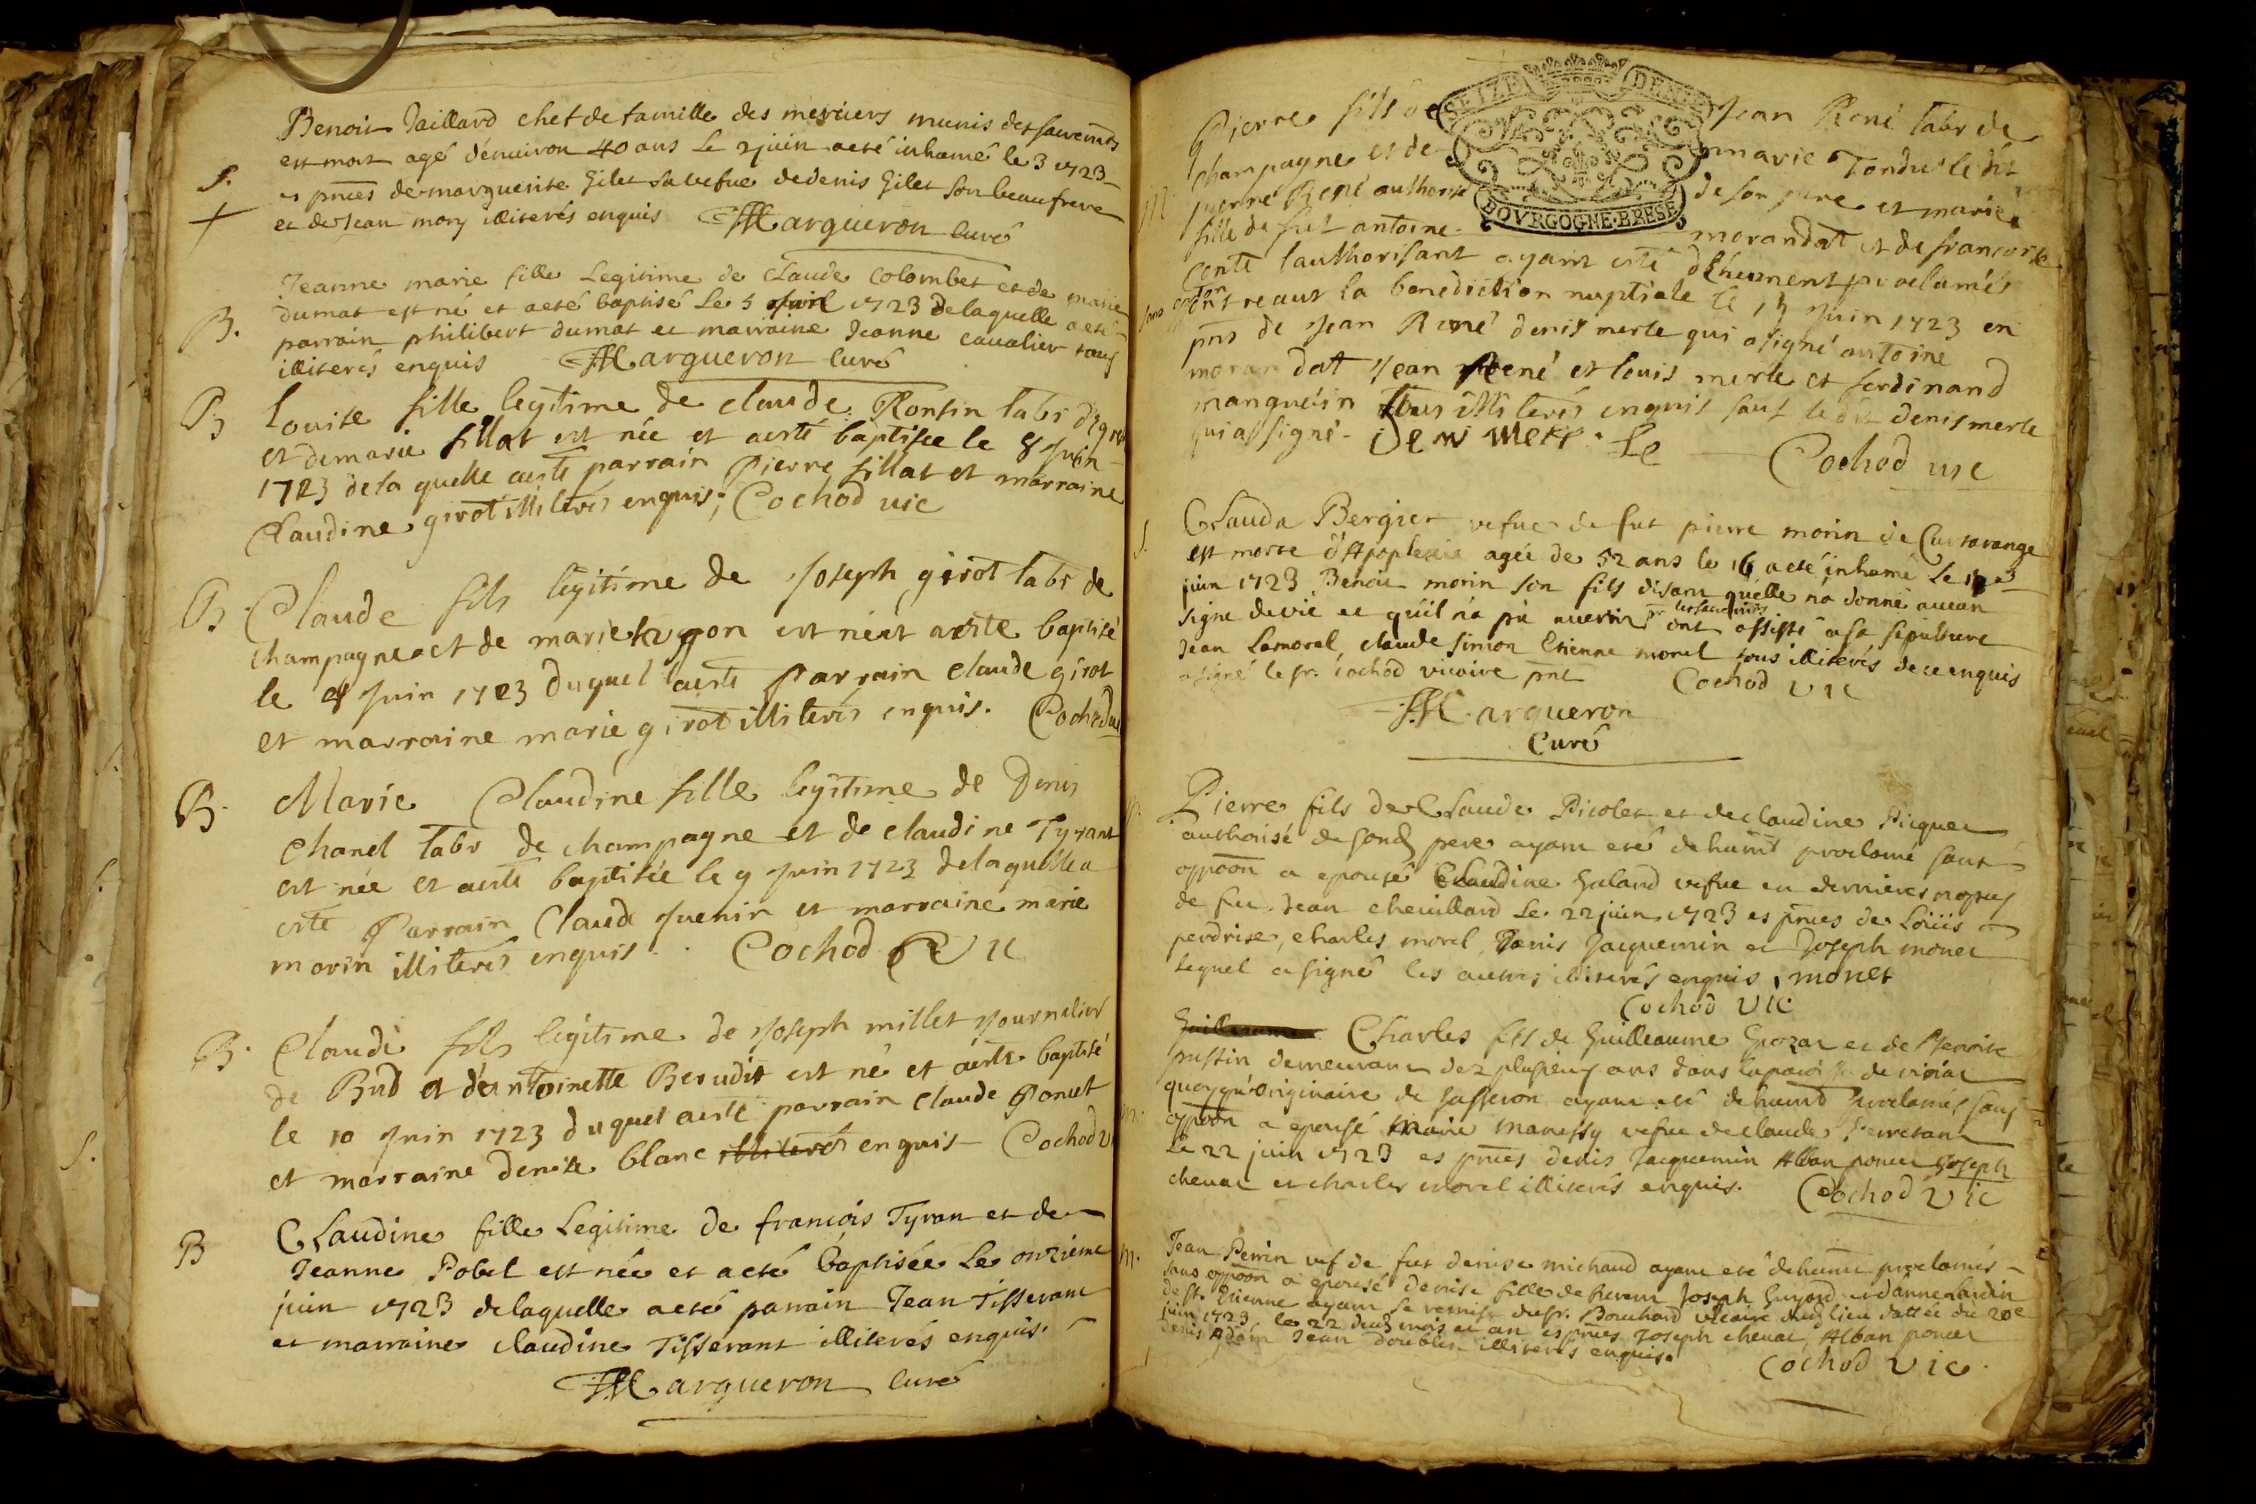 Benoit Jaillard chef de famille des meriers munis des sacremts
est mort agé d'enuiron 40 ans le 2 juin a eté inhumé le 3 1723
S.
es pnces de marguerite Gilet sa vefue de denis Gilet son beaufrere
et de Jean mory illiterés enquis Margueron curé
Jeanne marie fille Legitime de Claude Colombet et de marie
dumat est né et a eté baptisé Le 5 1723 de laquelle a eté
B.
parrain philibert dumat et marraine Jeanne caualier tous
illiterés enquis Margueron Curé
B
Louise fille legitime de claude Ronsin labr
et de marie fillat est née et aesté baptisée le 8 Juin
1723 de la quelle aesté parrain Pierre fillat et marraine
Claudine girot illiterés enquis, Cochod vic
B
Claude fils legitime de Joseph girot labr de
champagne et de marie est né et aesté baptisé
le 8 Juin 1723 duquel aesté Parrain Claude girot
et marraine marie girot illiterés enquis. Cochod
B.
Marie Claudine fille legitime de Denis
Chanel labr de champagne et de claudine Tyrant
est née et aesté baptisée le 9 Juin 1723 de laquelle a
esté Parrain Claude Juenin et marraine marie
morin illiterés enquis. Cochod Vic
B.
Claude fils legitime de Joseph millet Journalier
de Bud et d'antoinette Beaudit est né et aesté baptisé
le 10 Juin 1723 duquel aesté parrain claude Ponet
et marraine denise blanc illiterés enquis Cochod v
B
Claudine fille Legitime de francois Tyran et de
Jeanne Pobel est née et a eté baptisée Le onzieme
juin 1723 de laquelle a eté parrain Jean Tisserant
et marraine claudine Tisserant illiterés enquis.
Margueron Curé
SEIZE DENIE
BOVRGOGNE·BRESE
Pierre fils de Jean René labr de
champagne et de marie Tondu le dit
M
pierre René authorisé de son pere et marie
fille de fut antoine morandat et de francoise
Conte l'authorisant ayant esté dehument proclamés
sans ont receut la benediction nuptiale le 13 Juin 1723 en
pns de Jean René denis merle qui a signé antoine
morandat Jean René et louis merle et ferdinand
manguéin tous illiterés enquis sauf le dit denis merle
qui a signé. Cochod vic
S.
Clauda Bergier vefue de fut pierre morin de Curtarange
est morte d'Apoplexie agée de 52 ans le 16 a eté inhumé le
juin 1723 Benoit morin son fils disant quelle n'a donné aucun
signe de vie et qu'il n'a pu auertir pr les sacremts ont assisté a sa sepulture
Jean Lamorel, claude simon Etienne morel tous illiterés de ce enquis
a signé le sr. cochod vicaire pnt Cochod Vic
Margueron
Curé
Pierre fils de Claude Picolet et de claudine Picquet
authorisé de sond pere ayant eté dehumt proclamé sans
oppoon a epousé Claudine Galand vefue en dernieres nopces
de feu Jean cheuillard Le 22 juin 1723 es pnces de Loüis
perdrise, charles morel, Denis Jacquemin et Joseph monet
lequel a signé les autres illiterés enquis, monet
Cochod Vic
Charles fils de Guilleaume Gpozat et de Pierrite
pustin demeurant dez plusieurs ans dans la paroisse de viriat
quoyqu'originaire de Jasseron ayant eté dehumt proclamés sans
m.
oppoon a epousé marie manessy vefue de claude Perretant
Le 22 juin 1723 es pnces denis Jacquemin Alban poncet Joseph
cheuat et charles morel illiterés enquis. Cochod Vic
m.
Jean Perrin vef de fut denise michaud ayant eté dehumt proclamés
sans oppoon a epousé denise fille de Joseph Guyard et d'anne
de St. Etienne ayant Le remise du sr. Bouchard vicaire dud lieu dattée du 20e
juin 1723 le 22 dud mois et an es pnces Joseph cheuat, Alban poncet
denis Adam Jean doublet illiterés enquis.
Cochod Vic.